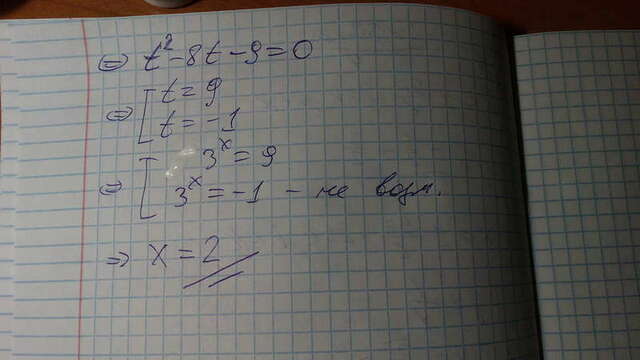 ⇔ t² - 8t - 9 = 0
⇔ [ t = 9
t = -1
⇔ [ 3ˣ = 9
3ˣ = -1 - не возм.
⇒ x = 2